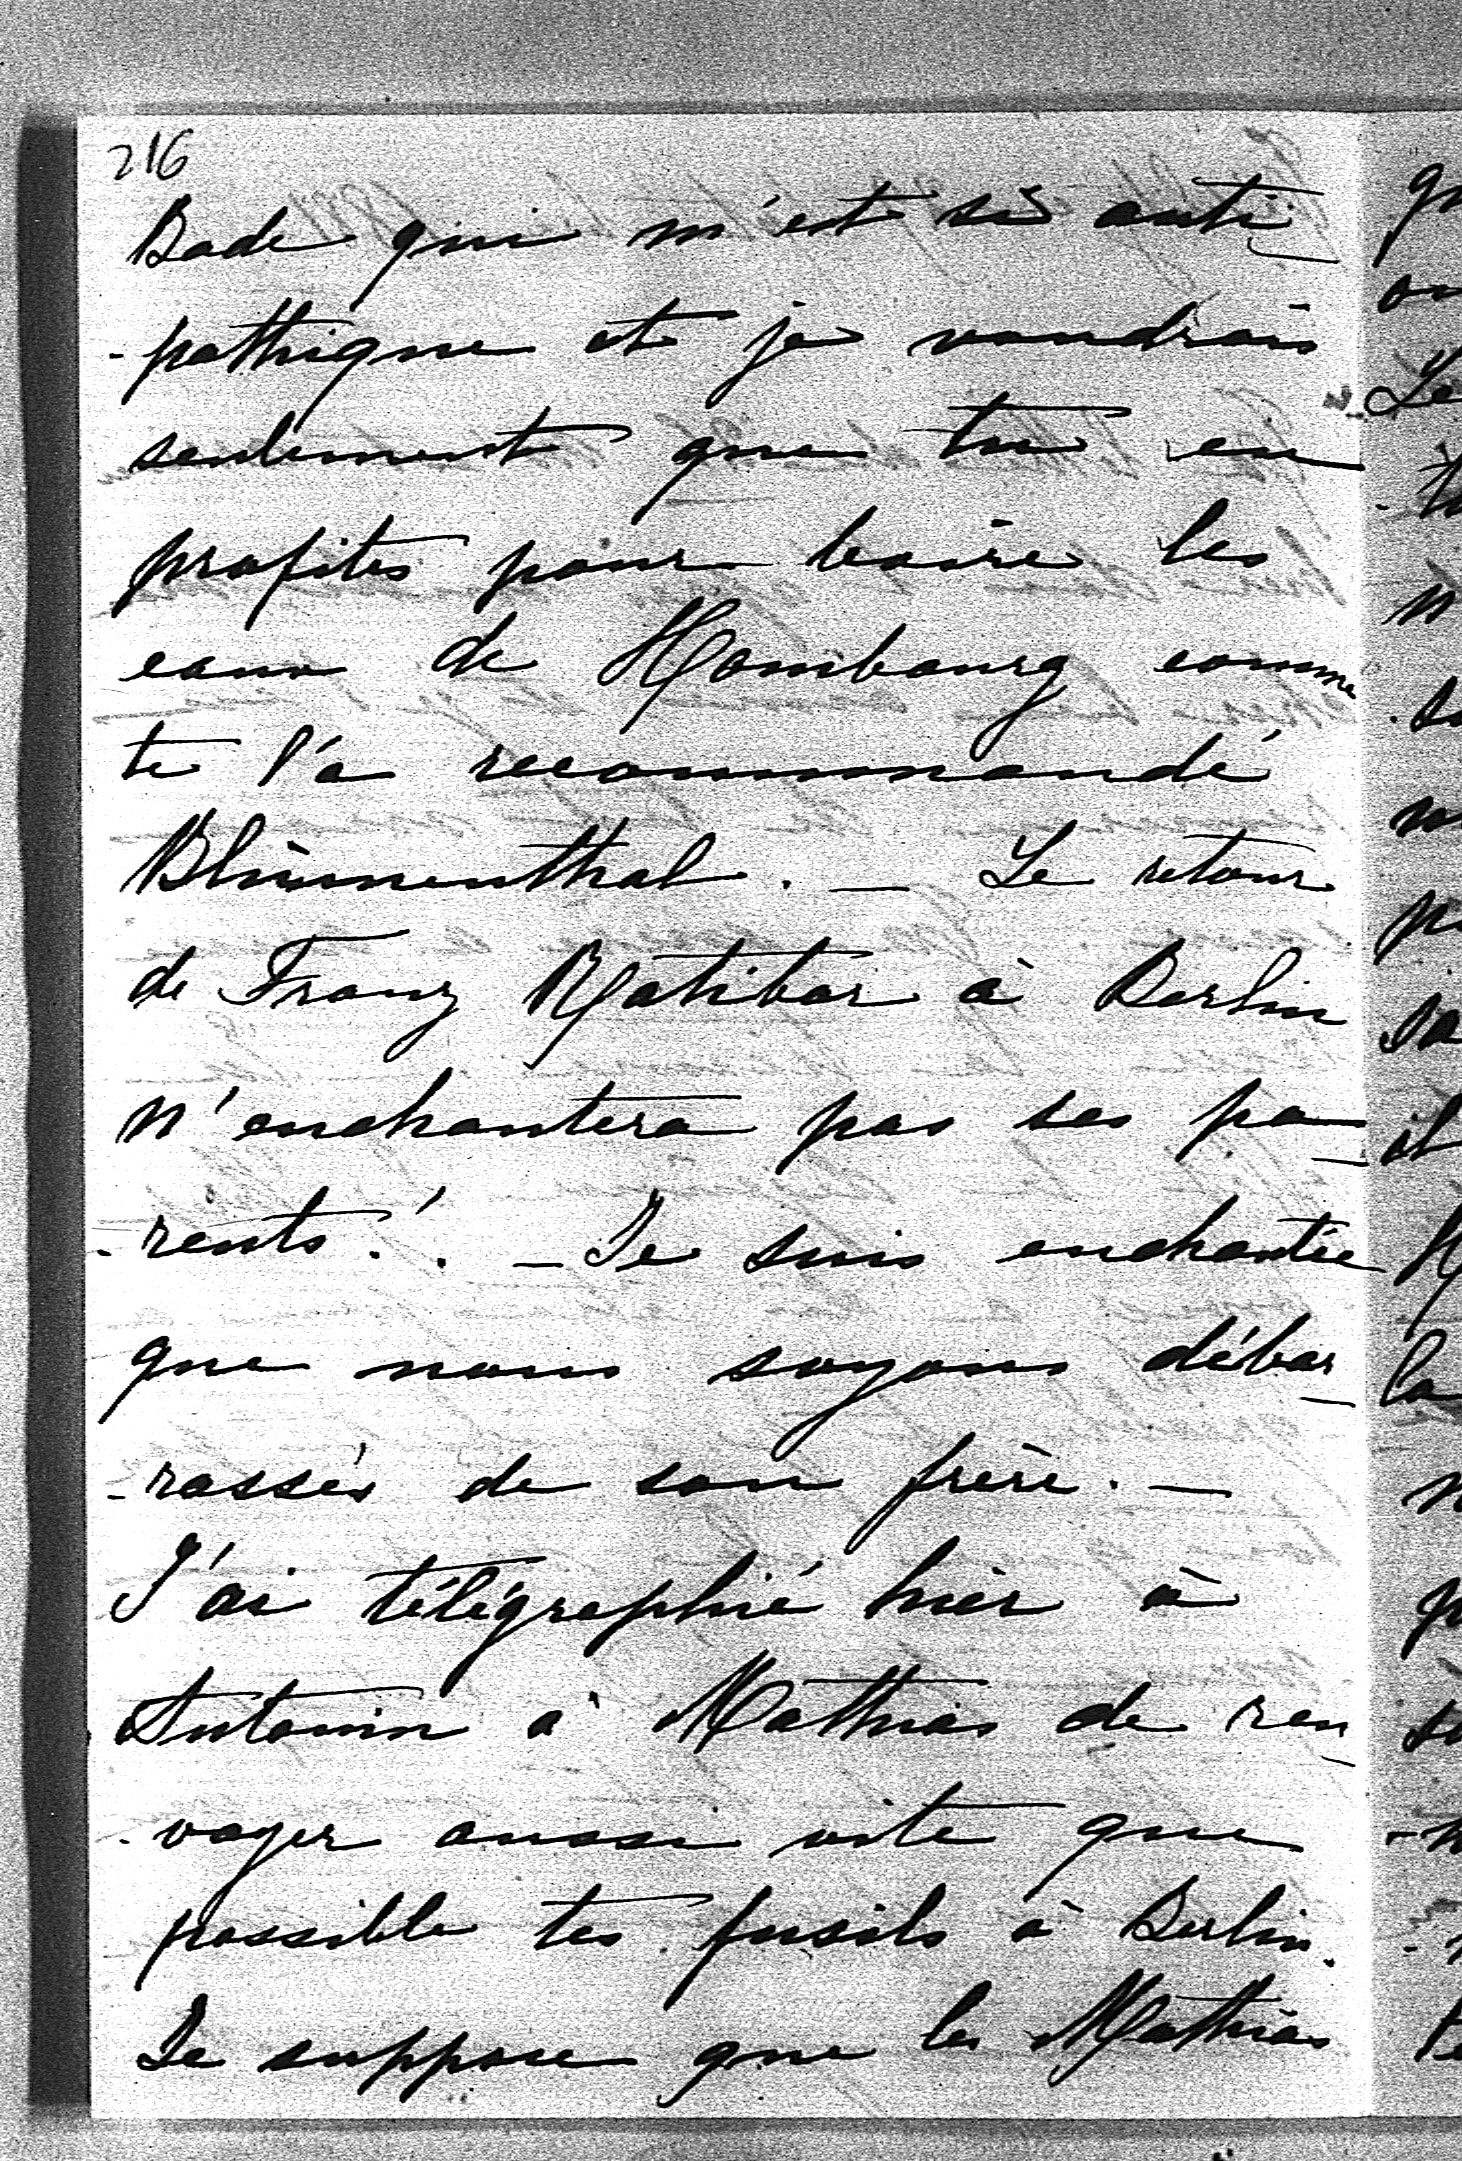 216
Bade qui m'est si anti-
-pathique et je voudrais
seulement que tu en
profites pour boire les
eaux de Hombourg comme
te l'a recommandé
Blumenthal. — Le retour
de Franz Ratibor à Berlin
n'enchantera pas ses pa-
-rents! — Je suis enchantée
que nous soyons débar-
-rassés de son frère. —
J'ai télégraphié hier à
Antonin à Mathias de ren-
-voyer aussi vite que
possible tes fusils à Berlin.
Je suppose que les Mathias